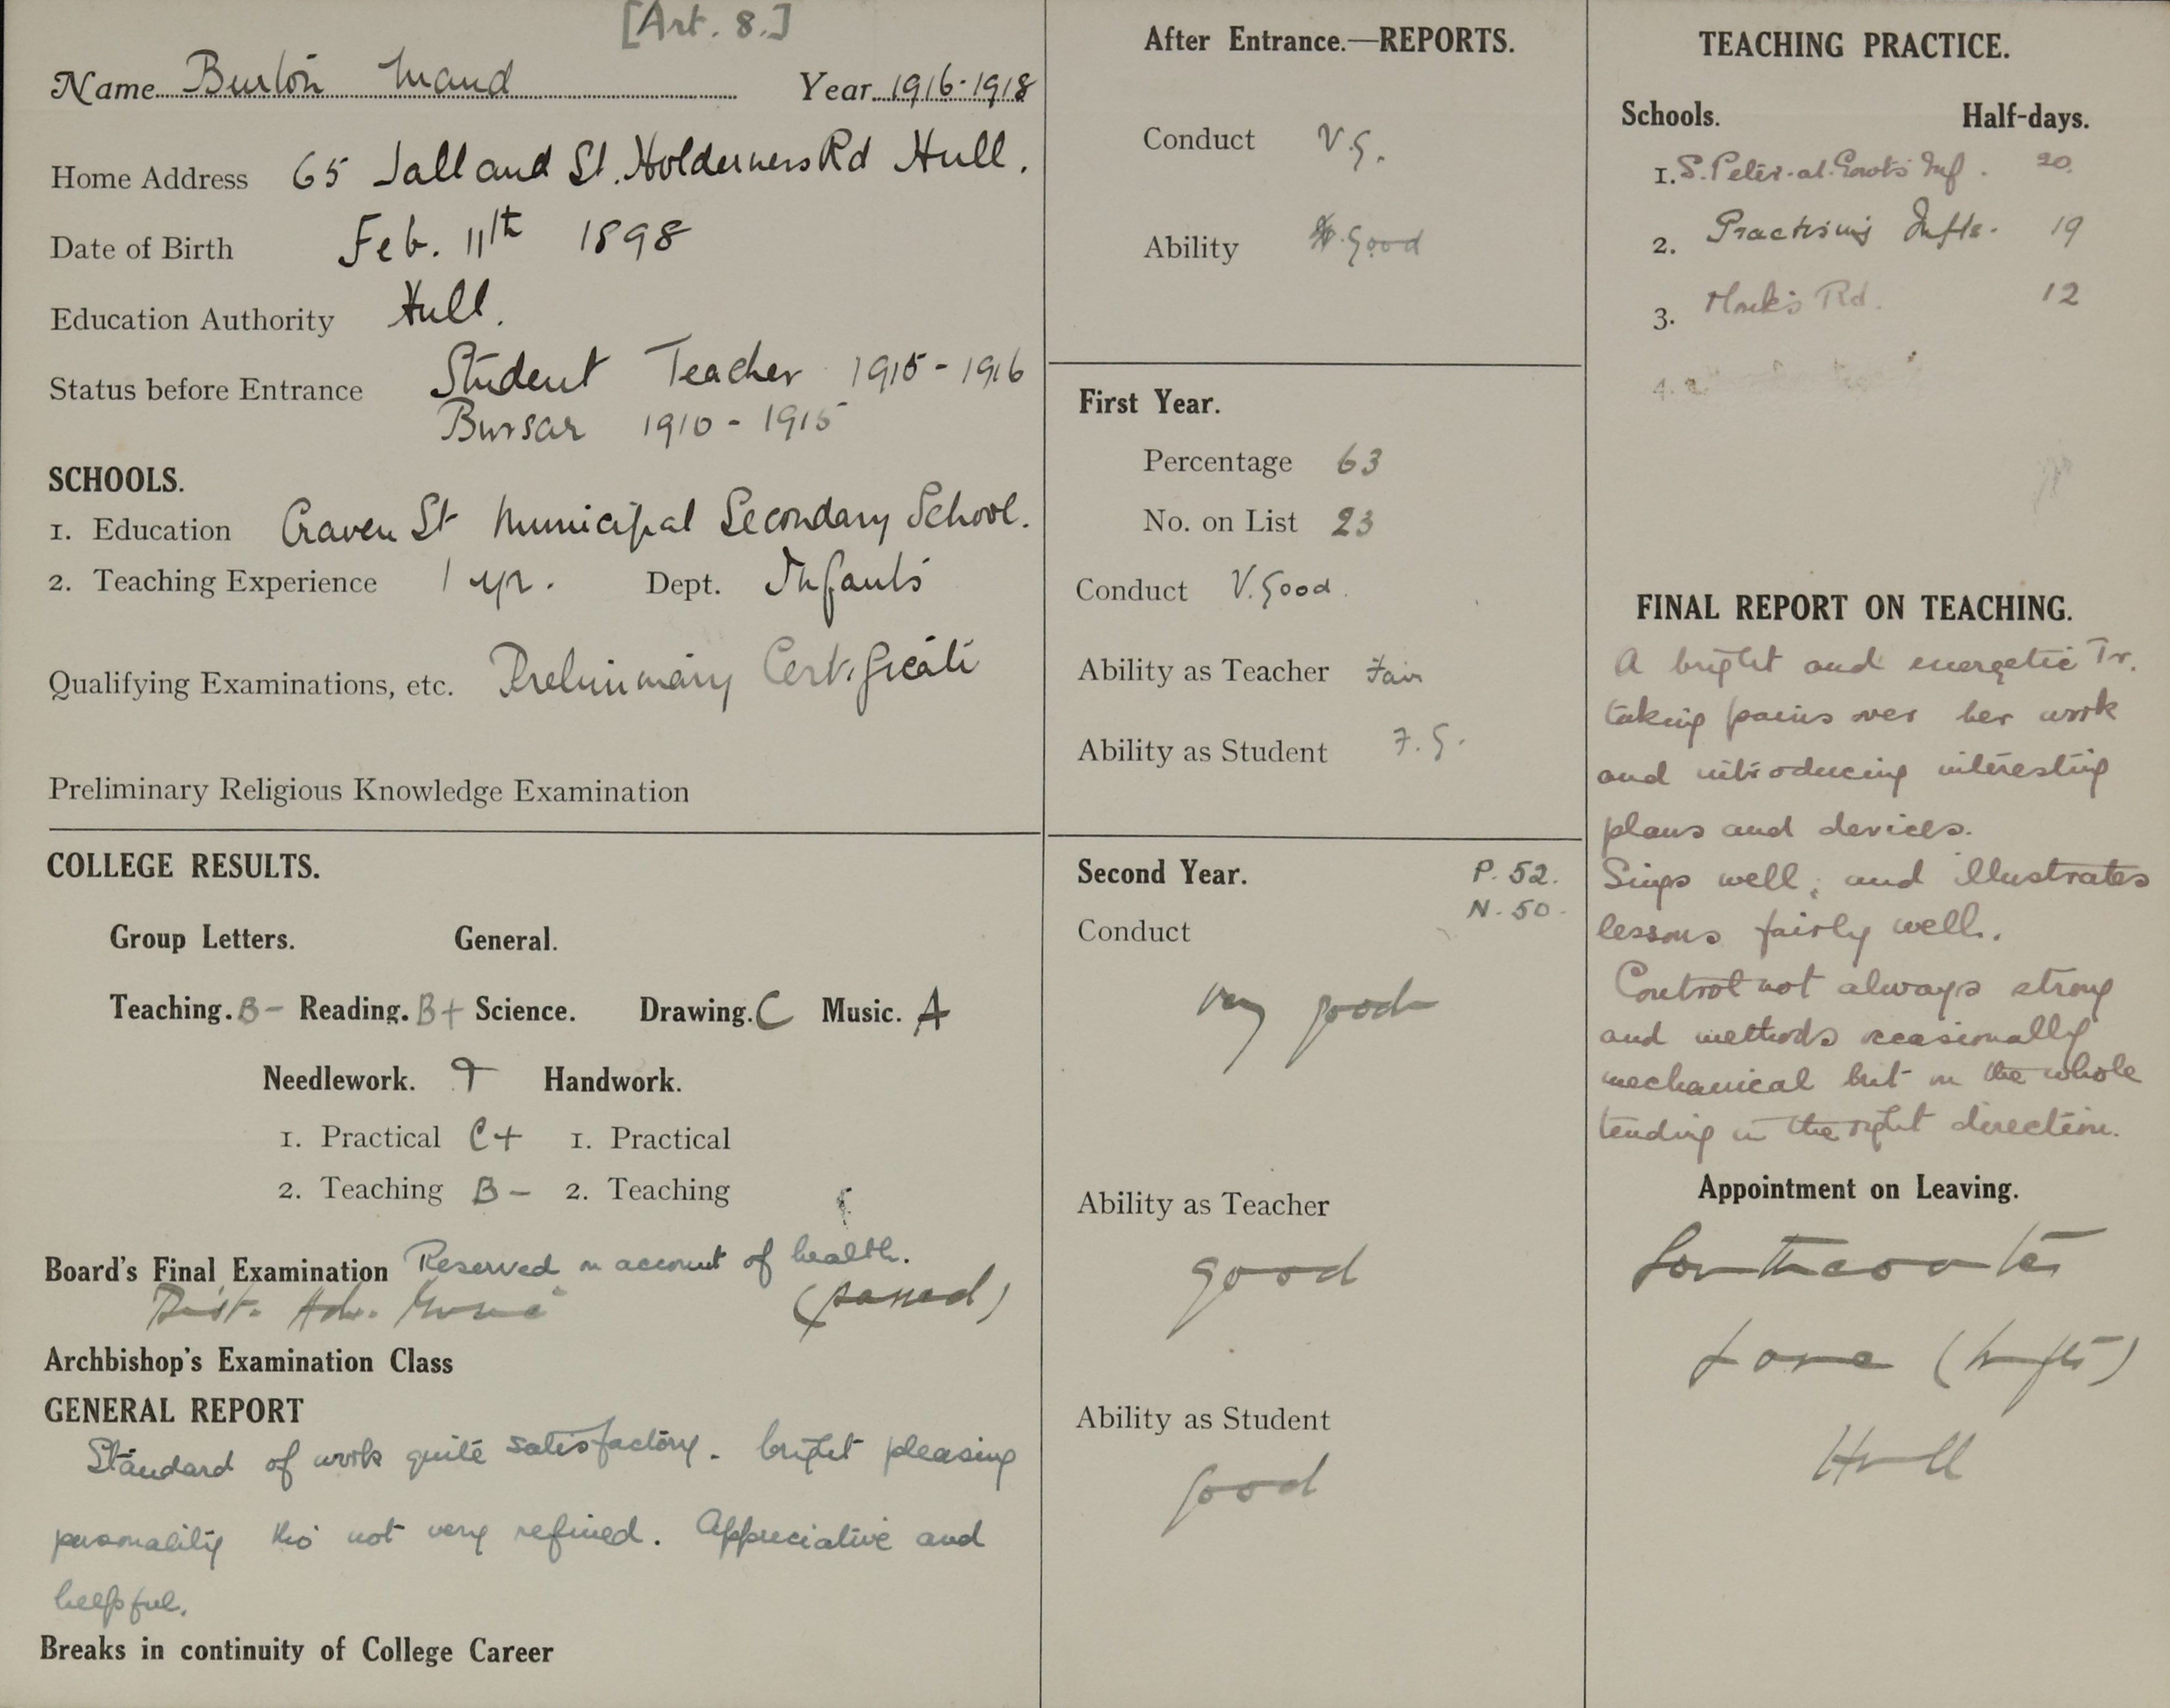 [Art. 8.]
Name Burton Maud Year 1916-1918
Home Address 65 Jalland St. Holderness Rd Hull.
Date of Birth Feb. 11th 1898
Education Authority Hull.
Status before Entrance Student Teacher 1915-1916
Bursar 1910-1915
SCHOOLS.
1. Education Craven St Municipal Secondary School.
2. Teaching Experience 1 yr. Dept. Infants
Qualifying Examinations, etc. Preliminary Certificate
Preliminary Religious Knowledge Examination
COLLEGE RESULTS.
Group Letters. General.
Teaching. B- Reading. B+ Science. Drawing. C Music. A
Needlework. Handwork.
1. Practical C+ 1. Practical
2. Teaching B- 2. Teaching
Board's Final Examination Reserved on account of health.
Dist. Adv. Music (passed)
Archbishop's Examination Class
GENERAL REPORT
Standard of work quite satisfactory. bright pleasing
personality tho' not very refined. Appreciative and
helpful.
Breaks in continuity of College Career
After Entrance.—REPORTS.
Conduct V.G.
Ability Good
First Year.
Percentage 63
No. on List 23
Conduct V. Good.
Ability as Teacher Fair
Ability as Student F.G.
Second Year. P. 52.
N. 50.
Conduct
Very good
Ability as Teacher
good
Ability as Student
good
TEACHING PRACTICE.
Schools. Half-days.
1. S. Peter-at-Gowts Inf. 20.
2. Practising Infts. 19
3. Monk's Rd. 12
4.
FINAL REPORT ON TEACHING.
A bright and energetic Tr.
taking pains over her work
and introducing interesting
plans and devices.
Sings well, and illustrates
lessons fairly well.
Control not always strong
and methods occasionally
mechanical but on the whole
tending in the right direction.
Appointment on Leaving.
Southcoates
Lane (Infts)
Hull